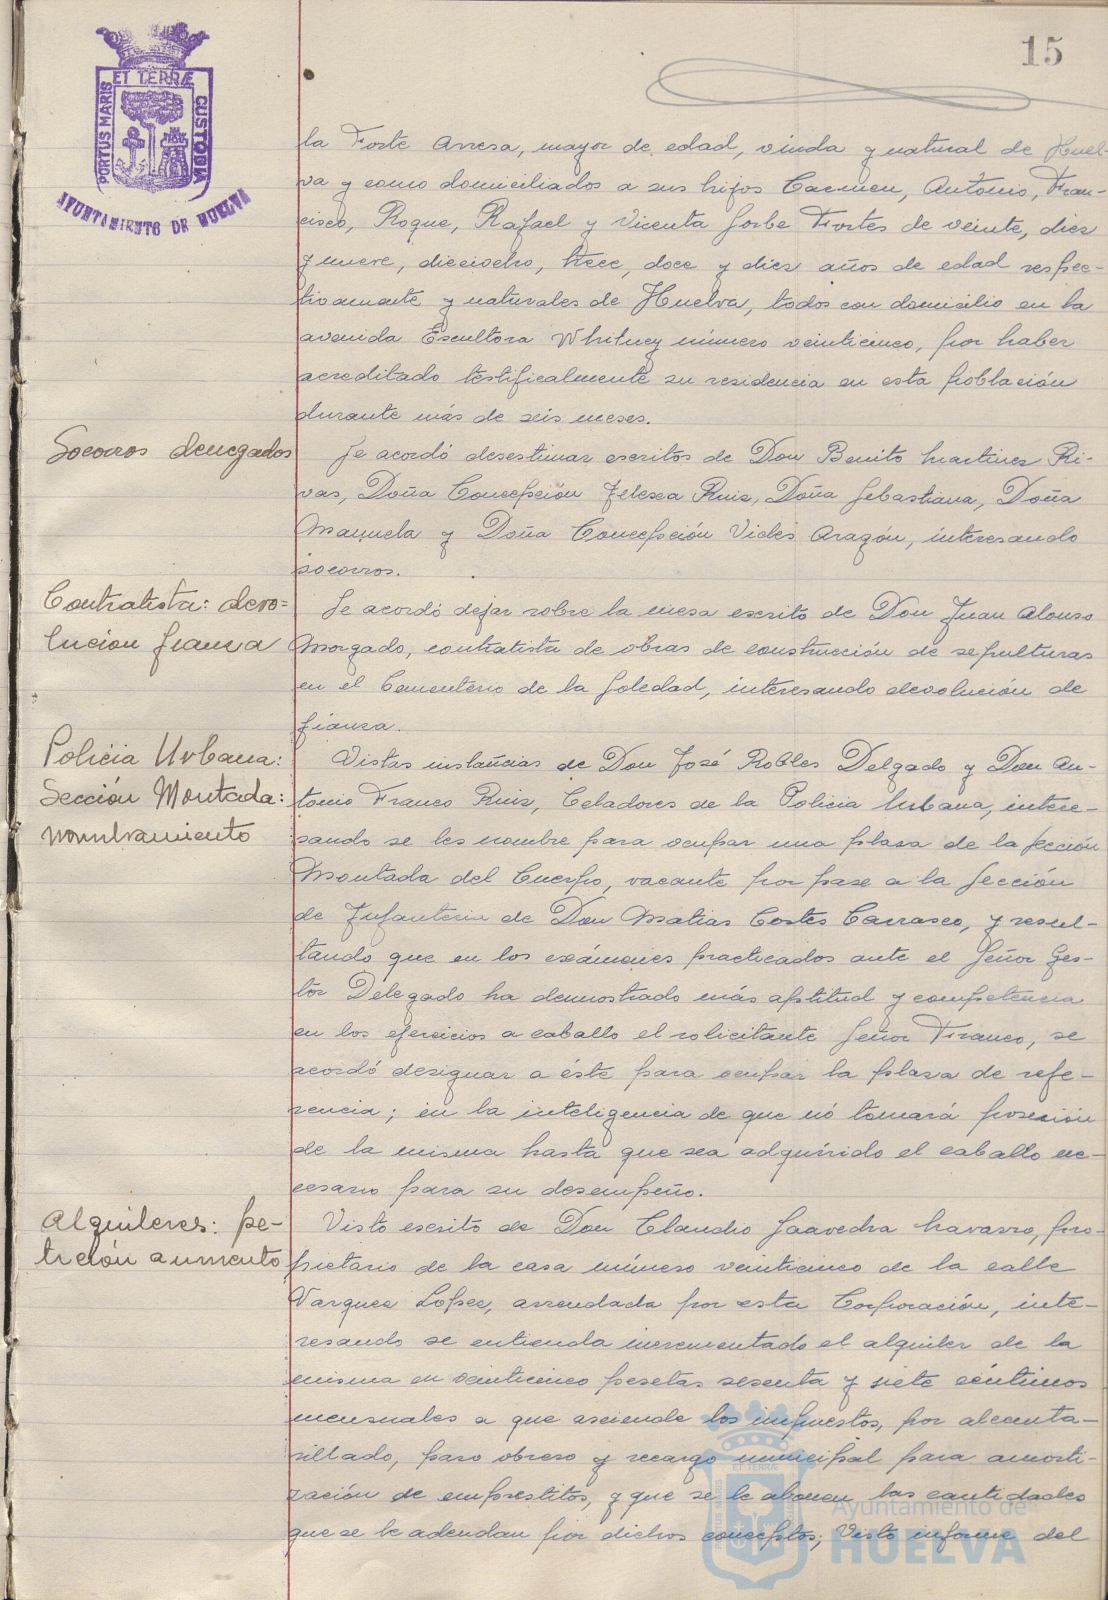 15
ET TERRÆ
PORTUS MARIS
CUSTODIA
AYUNTAMIENTO DE HUELVA
la Forte Arresa, mayor de edad, viuda y natural de Huel-
va y como domiciliados a sus hijos Carmen, Antonio, Fran-
cisco, Roque, Rafael y Vicenta Fortes de veinte, diez
y nueve, dieciocho, trece, doce y diez años de edad respec-
tivamente y naturales de Huelva, todos con domicilio en la
avenida Escultora Whitney número veinticinco, por haber
acreditado testificalmente su residencia en esta población
durante más de seis meses.
Socorros denegados
Se acordó desestimar escritos de Don Benito Martinez Ri-
vas, Doña Concepción Ruiz, Doña Sebastiana, Doña
Manuela y Doña Concepción Vides Aragón, interesando
socorros.
Contratista: devo-
lución fianza
Se acordó dejar sobre la mesa escrito de Don Juan Alonso
Morgado, contratista de obras de construcción de sepulturas
en el Cementerio de la Soledad, interesando devolución de
fianza.
Policia Urbana:
Sección Montada:
nombramiento
Vistas instancias de Don José Robles Delgado y Don An-
tonio Franco Ruiz, Celadores de la Policia Urbana, intere-
sando se les nombre para ocupar una plaza de la Sección
Montada del Cuerpo, vacante por pase a la Sección
de Infanteria de Don Matias Cortes Carrasco, y resul-
tando que en los exámenes practicados ante el Señor Ges-
tor Delegado ha demostrado más aptitud y competencia
en los ejercicios a caballo el solicitante Señor Franco, se
acordó designar a éste para ocupar la plaza de refe-
rencia; en la inteligencia de que nó tomará posesión
de la misma hasta que sea adquirido el caballo ne-
cesario para su desempeño.
Alquileres: pe-
tición aumento
Visto escrito de Don Claudio Saavedra Navarro, pro-
pietario de la casa número veinticinco de la calle
Vazquez Lopez, arrendada por esta Corporación, inte-
resando se entienda incrementado el alquiler de la
misma en veinticinco pesetas sesenta y siete céntimos
mensuales a que asciende los impuestos, por alcanta-
rillado, paro obrero y recargo municipal para amorti-
zación de emprestitos, y que se le abonen las cantidades
que se le adeudan por dichos conceptos; Visto informe del
Ayuntamiento de
HUELVA